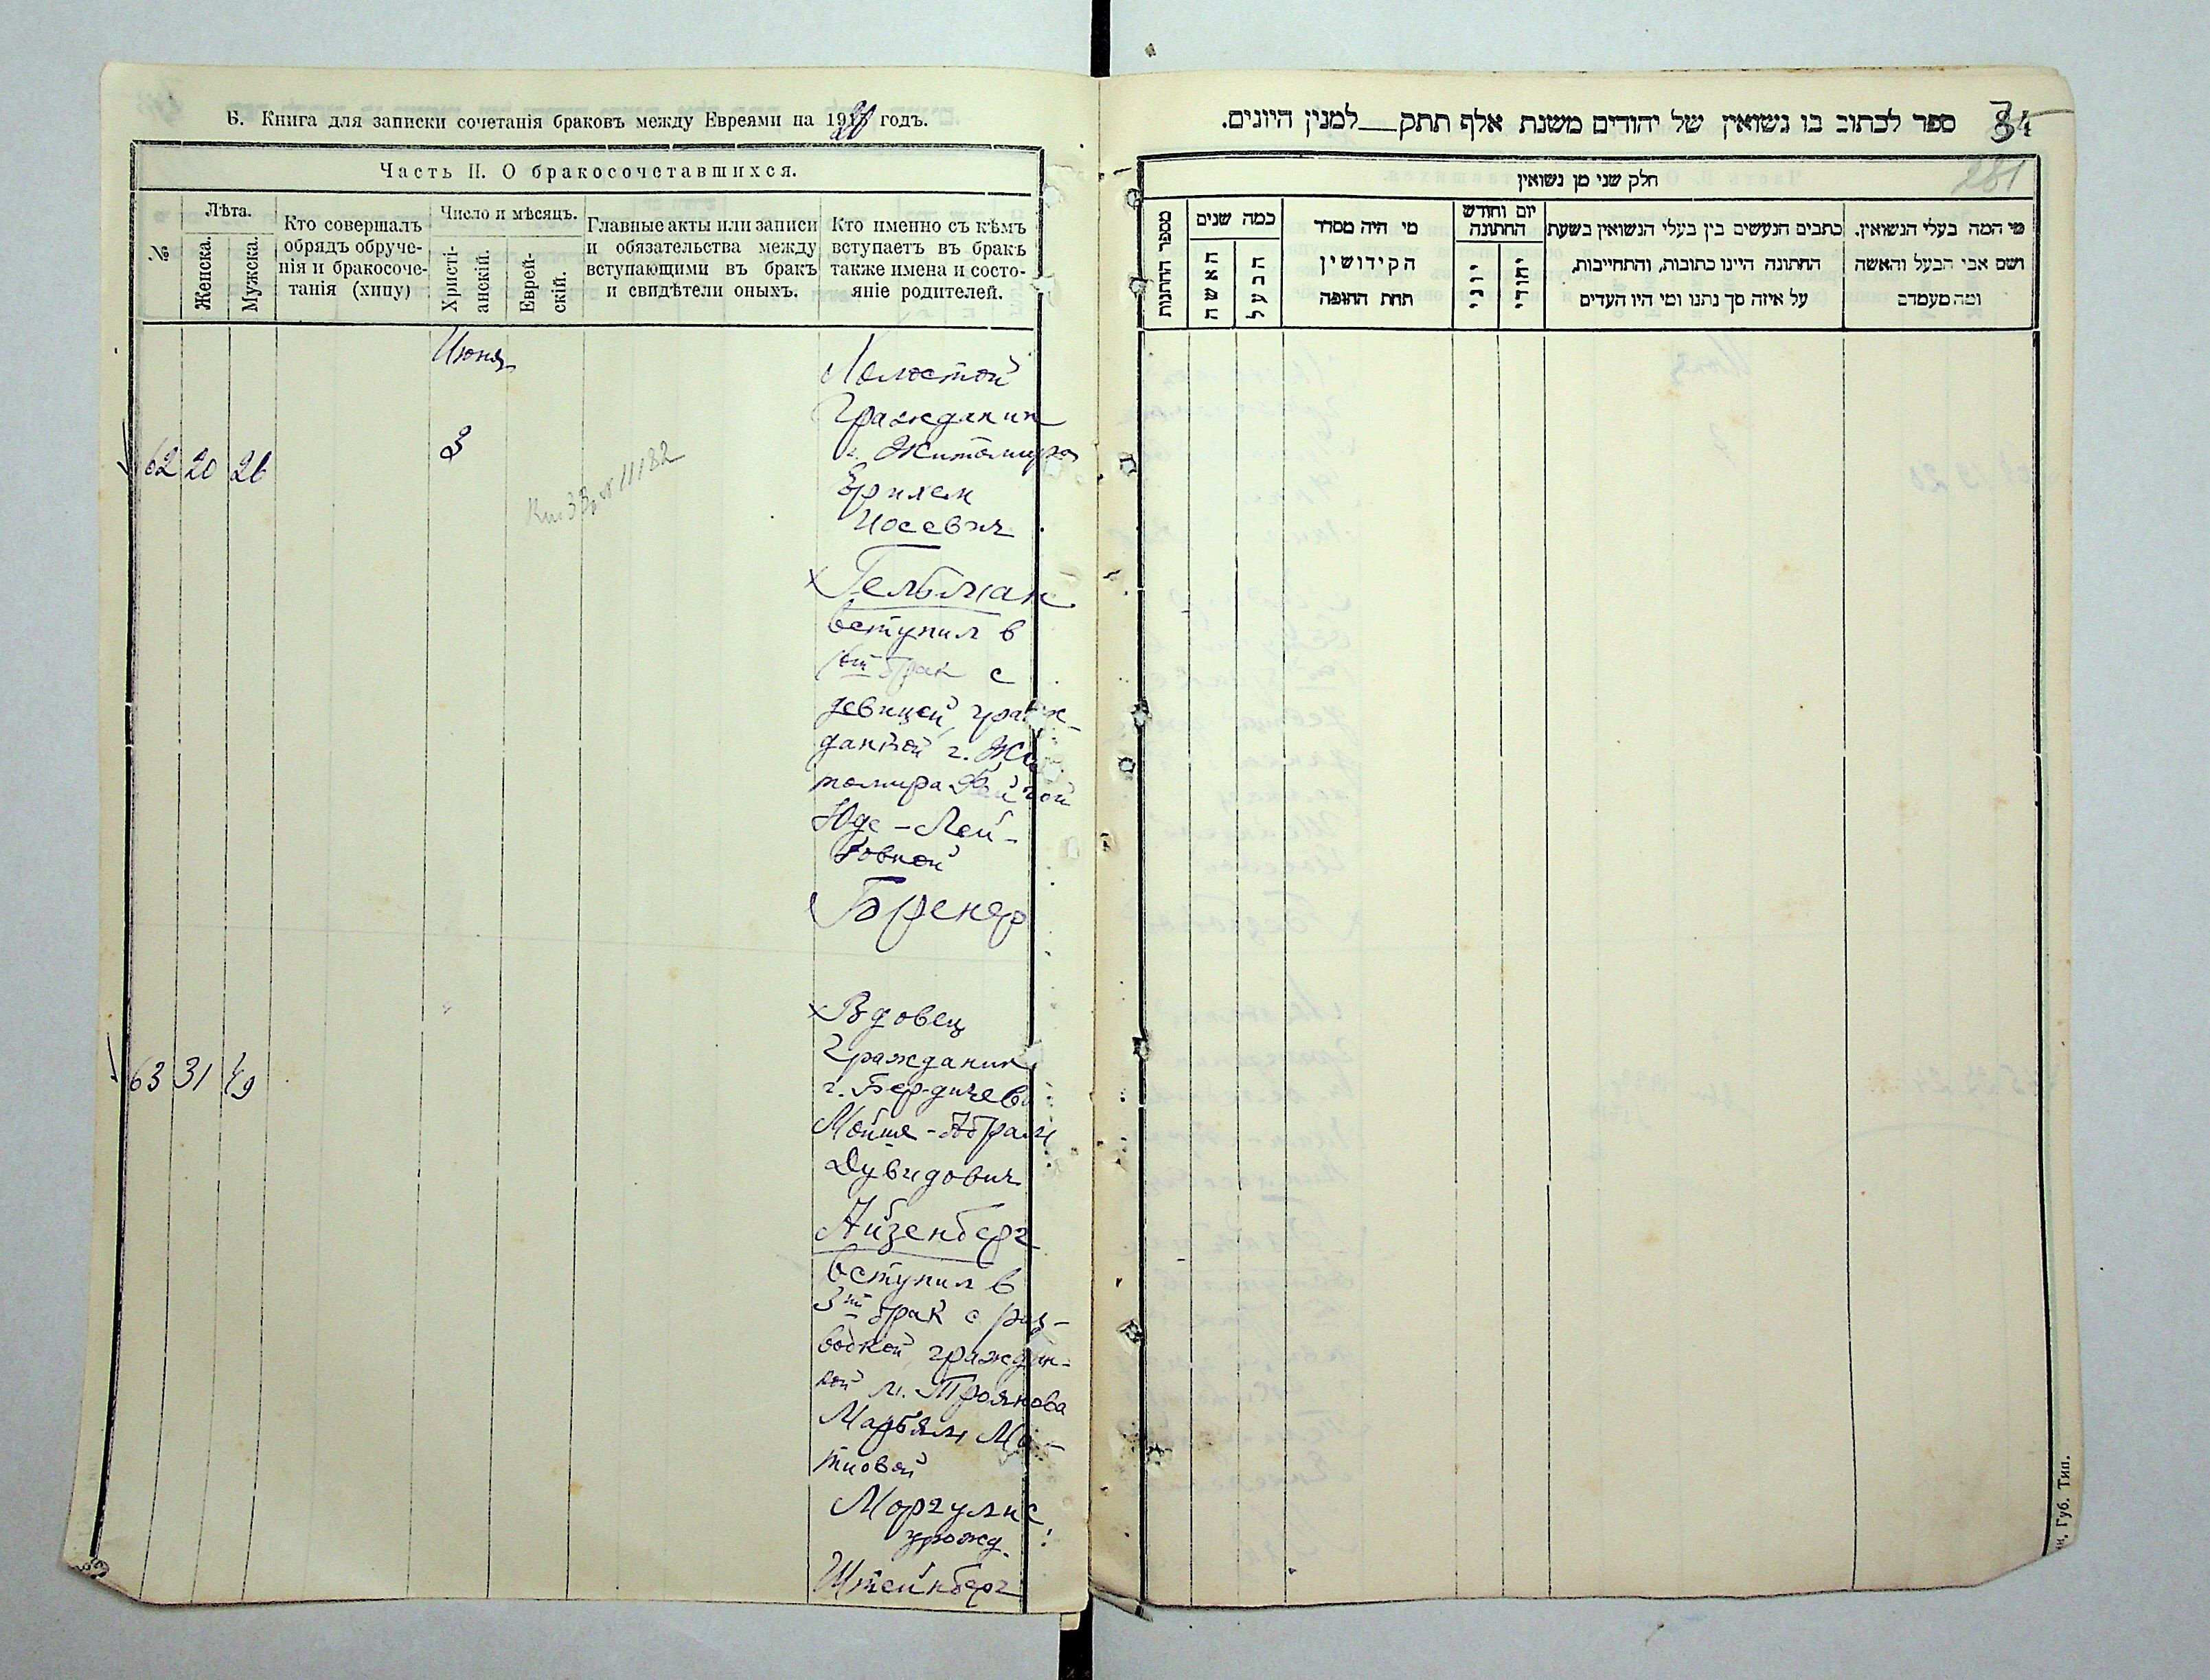 Б. Книга для записки сочетанія браковъ между Евреями на 1920 годъ.
Часть II. О бракосочетавшихся.
№
Лѣта.
Женска.
Мужска.
Кто совершалъ
обрядъ обруче-
нія и бракосоче-
танія (хипу)
Число и мѣсяцъ.
Христі-
анскій.
Еврей-
скій.
Главные акты или записи
и обязательства между
вступающими въ бракъ
и свидѣтели оныхъ.
Кто именно съ кѣмъ
вступаетъ въ бракъ
также имена и состо-
яніе родителей.
Июня
62 20 26
3
11182
Холостой
Гражданин
г. Житомира
Ерихем
Иосевич
Гельман
вступил в
1ый брак с
девицей, граж-
данкой г. Жи
томира Хайкой
Юде-Лей-
бовной
Бренер
63 31 49
Вдовец
Гражданин
г. Бердичева
Мойше-Абрам
Дувидович
Айзенберг
вступил в
3ий брак с раз-
водкой, граждан-
кой м. Троянова
Марьям Мо-
тиовой
Моргулис
урожд.
Штейнберг
ספר לכתוב בו נשואין של יהודים משנת אלף תתק__למנין היונים.
34
281
חלק שני מן נשואין
מספר החתנות
כמה שנים
האשה
הבעל
מי היה מסדר
הקידושין
תחת החופה
יום וחודש
החתונה
יוני
יהודי
כתבים הנעשים בין בעלי הנשואין בשעת
החתונה היינו כתובות, והתחייבות,
על איזה סך נתנו ומי היו העדים
מי המה בעלי הנשואין.
ושם אבי הבעל והאשה
ומה מעמדם
Губ. Тип.